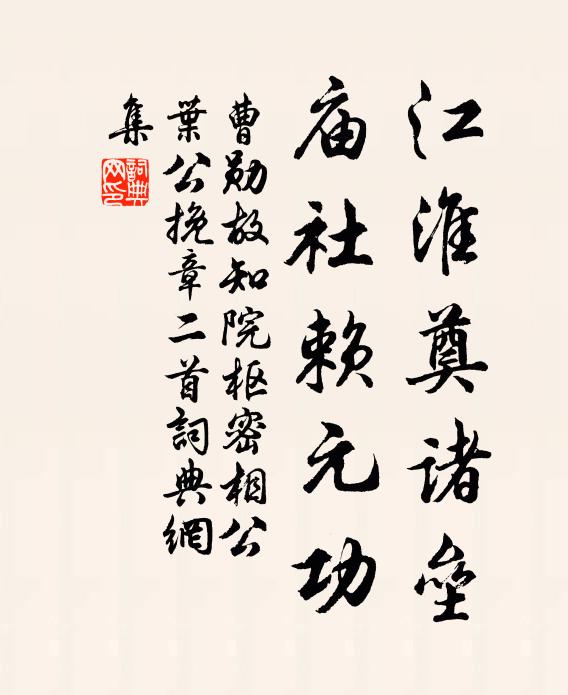 江淮奠诸垒
庙社赖元功
曹勋故知院枢密相公
葉公挽章二首詞典網
集
詞典網印